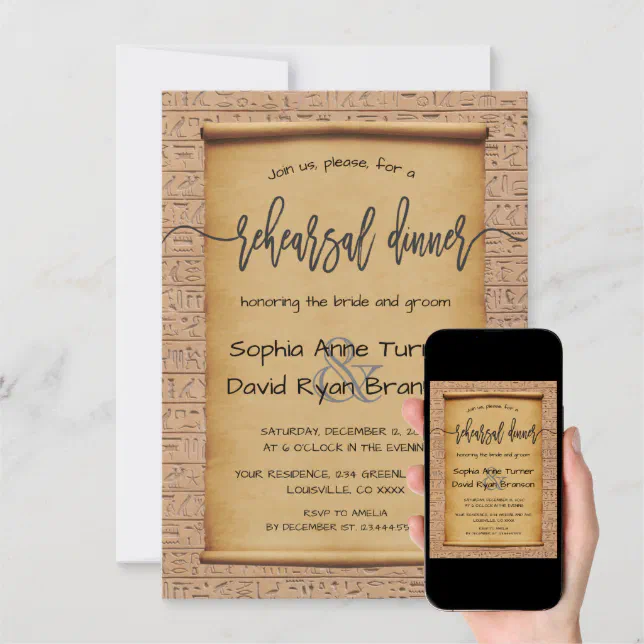 Join us, please, for a
rehearsal dinner
honoring the bride and groom
Sophia Anne Turn
&
David Ryan Bran
SATURDAY, DECEMBER 12, 20
AT 6 O'CLOCK IN THE EVENIN
YOUR RESIDENCE, 1234 GREENL
LOUISVILLE, CO XXXX
RSVP TO AMELIA
BY DECEMBER 1ST. 123.444.55
Join us, please, for a
rehearsal dinner
honoring the bride and groom
Sophia Anne Turner
&
David Ryan Branson
SATURDAY, DECEMBER 12,
AT 6 O'CLOCK IN THE EVENING
YOUR RESIDENCE, 1234 GREENLAND AVE
LOUISVILLE, CO XXXX
RSVP TO AMELIA
BY DECEMBER 1ST.